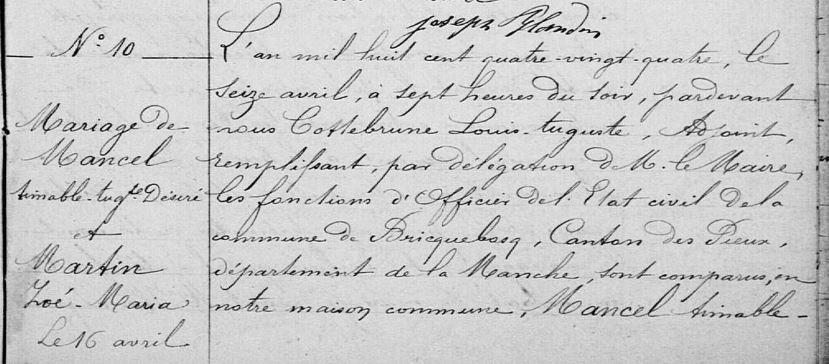 joseph Blandin
N° 10
Mariage de
Mancel
Aimable-Augte Désiré
et
Martin
Zoé-Maria
Le 16 avril
L'an mil huit cent quatre-vingt-quatre, le
seize avril, à sept heures du soir, pardevant
nous Cottebrune Louis-Auguste, Adjoint,
remplissant, par délégation de M. le Maire,
les fonctions d'Officier de l'Etat civil de la
commune de Bricquebosq, Canton des Pieux,
département de la Manche, sont comparus, en
notre maison commune, Mancel Aimable-